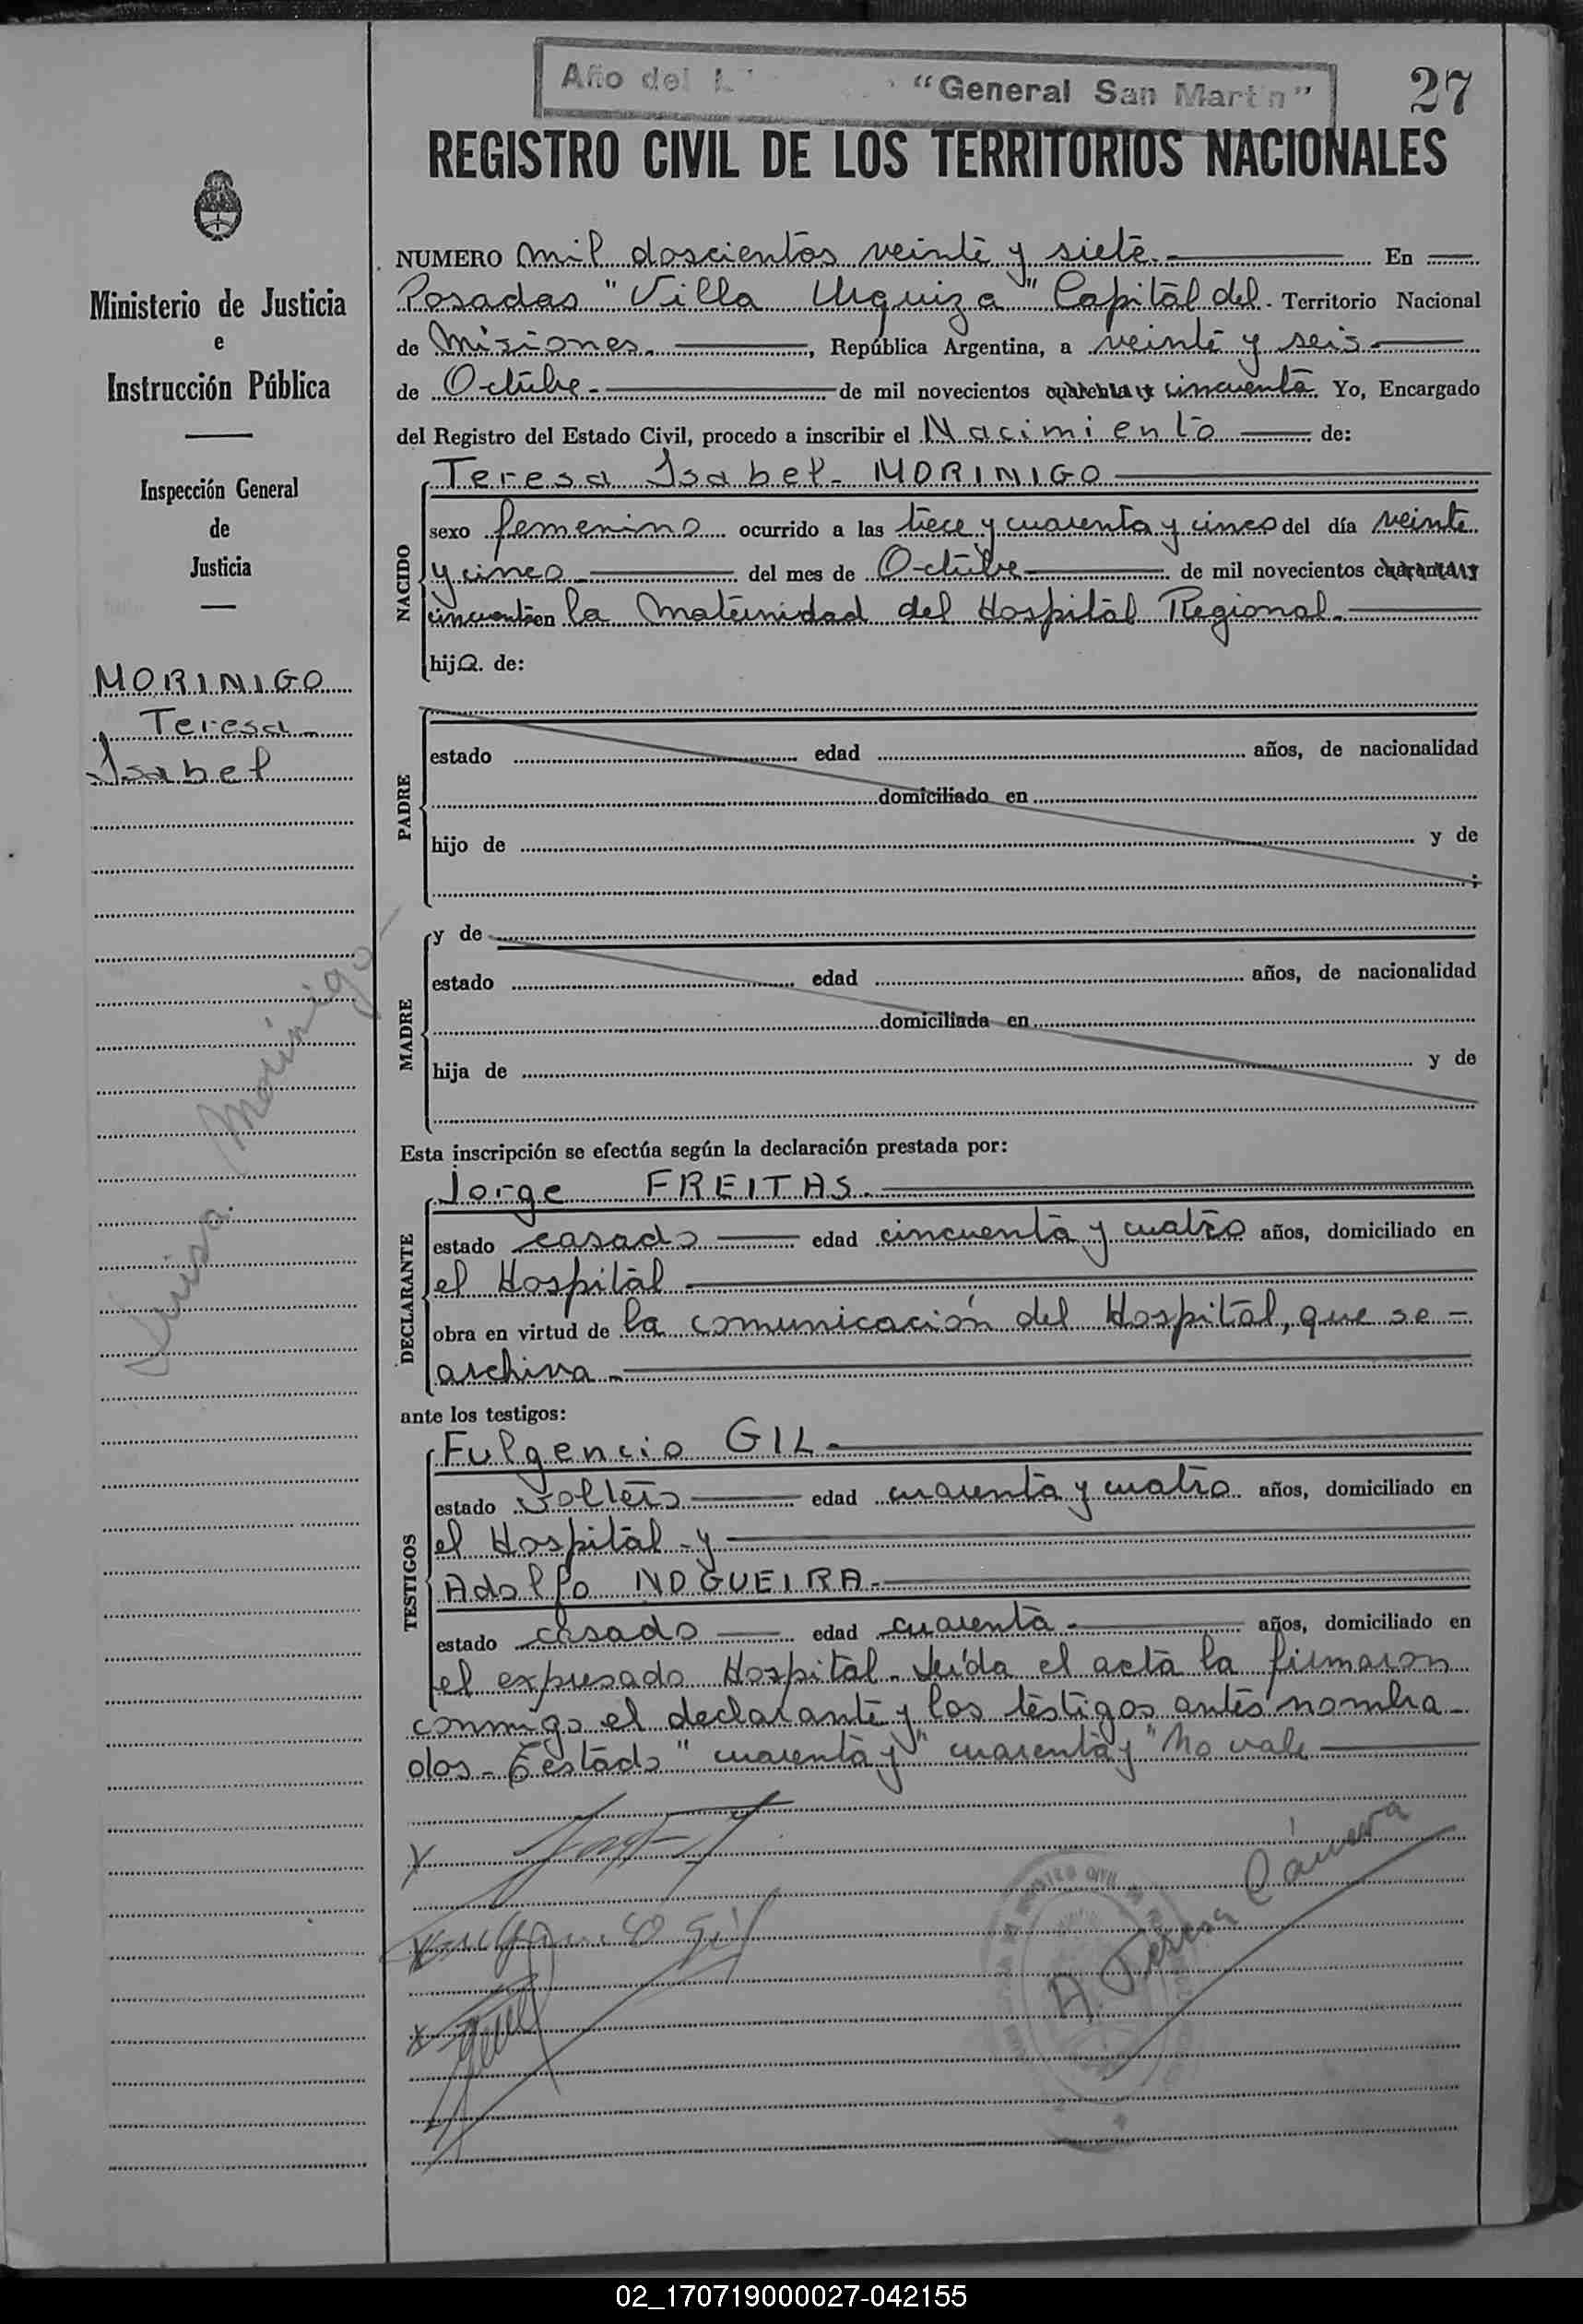 Año del L "General San Martín"
27
REGISTRO CIVIL DE LOS TERRITORIOS NACIONALES
Ministerio de Justicia
e
Instrucción Pública
Inspección General
de
Justicia
MORINIGO
Teresa
Isabel
Luisa Morinigo
NUMERO mil doscientos veinte y siete. En
Posadas "Villa Urquiza" Capital del. Territorio Nacional
de Misiones. , República Argentina, a veinte y seis
de Octubre de mil novecientos cuarenta y cincuenta. Yo, Encargado
del Registro del Estado Civil, procedo a inscribir el Nacimiento de:
NACIDO
Teresa Isabel MORINIGO
sexo femenino ocurrido a las trece y cuarenta y cinco del día veinte
y cinco del mes de Octubre de mil novecientos cuarenta y
cincuenta en la Maternidad del Hospital Regional.
hija. de:
PADRE
estado edad años, de nacionalidad
domiciliado en
hijo de y de
;
MADRE
y de
estado edad años, de nacionalidad
domiciliada en
hija de y de
Esta inscripción se efectúa según la declaración prestada por:
DECLARANTE
Jorge FREITAS.
estado casado edad cincuenta y cuatro años, domiciliado en
el Hospital
obra en virtud de la comunicación del Hospital, que se
archiva
ante los testigos:
TESTIGOS
Fulgencio GIL
estado soltero edad cuarenta y cuatro años, domiciliado en
el Hospital y
Adolfo NOGUEIRA
estado casado edad cuarenta años, domiciliado en
el expresado Hospital. Leída el acta la firmaron
conmigo el declarante y los testigos antes nombra
dos - Testado "cuarenta y" "cuarenta y" No vale
A. Teresa Cámera
02_170719000027-042155